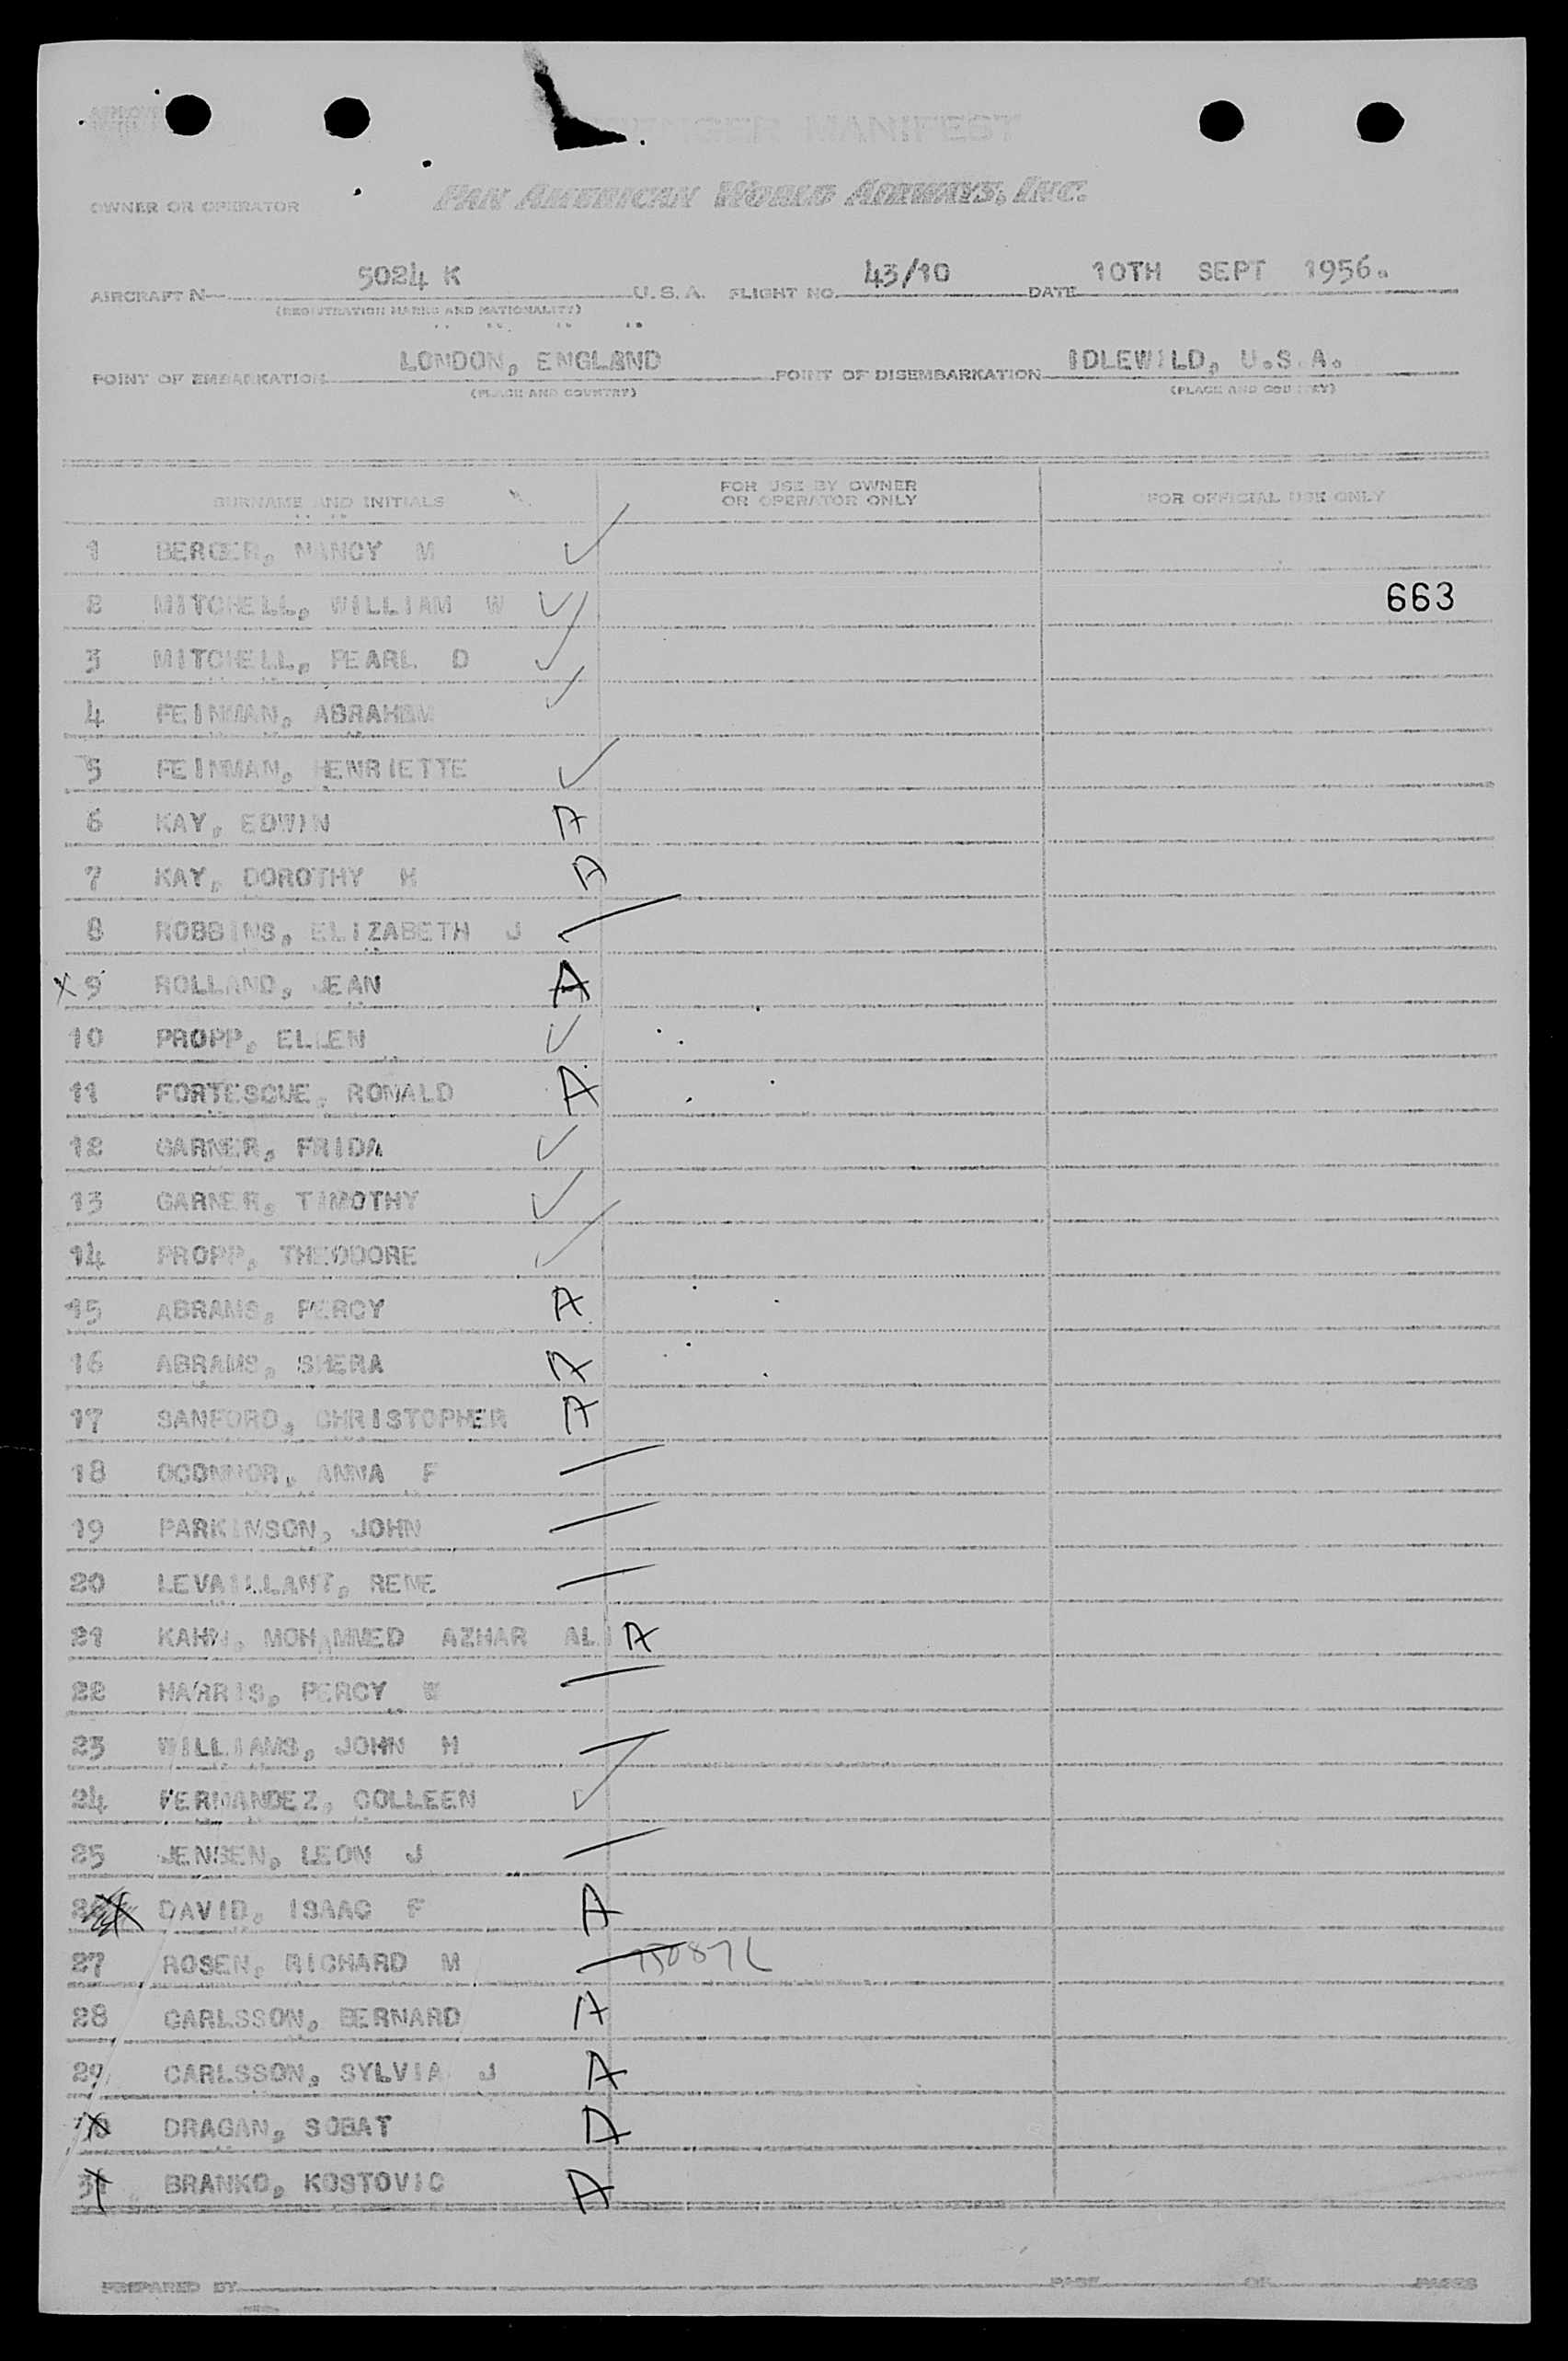 PASSENGER MANIFEST
OWNER OR OPERATOR PAN AMERICAN WORLD AIRWAYS, INC.
AIRCRAFT N 5024 K U.S.A. FLIGHT NO. 43/10 DATE 10TH SEPT 1956.
(REGISTRATION MARKS AND NATIONALITY)
POINT OF EMBARKATION LONDON, ENGLAND POINT OF DISEMBARKATION IDLEWILD, U.S.A.
(PLACE AND COUNTRY) (PLACE AND COUNTRY)
SURNAME AND INITIALS FOR USE BY OWNER OR OPERATOR ONLY FOR OFFICIAL USE ONLY
1 BERGER, NANCY M ✓
2 MITCHELL, WILLIAM W ✓ 663
3 MITCHELL, PEARL D ✓
4 FEINMAN, ABRAHAM ✓
5 FEINMAN, HENRIETTE ✓
6 KAY, EDWIN A
7 KAY, DOROTHY H A
8 ROBBINS, ELIZABETH J
X 9 ROLLAND, JEAN A
10 PROPP, ELLEN ✓
11 FORTESCUE, RONALD A
12 GARNER, FRIDA ✓
13 GARNER, TIMOTHY ✓
14 PROPP, THEODORE ✓
15 ABRAMS, PERCY A
16 ABRAMS, SHERA A
17 SANFORD, CHRISTOPHER A
18 OCONNOR, ANNA F
19 PARKINSON, JOHN
20 LEVAILLANT, RENE
21 KAHN, MOHAMMED AZHAR ALI A
22 HARRIS, PERCY W
23 WILLIAMS, JOHN H
24 FERNANDEZ, COLLEEN ✓
25 JENSEN, LEON J
26 DAVID, ISAAC F A
27 ROSEN, RICHARD M
28 CARLSSON, BERNARD A
29 CARLSSON, SYLVIA J A
30 DRAGAN, SOBAT A
31 BRANKO, KOSTOVIC A
PREPARED BY PAGE OF PAGES